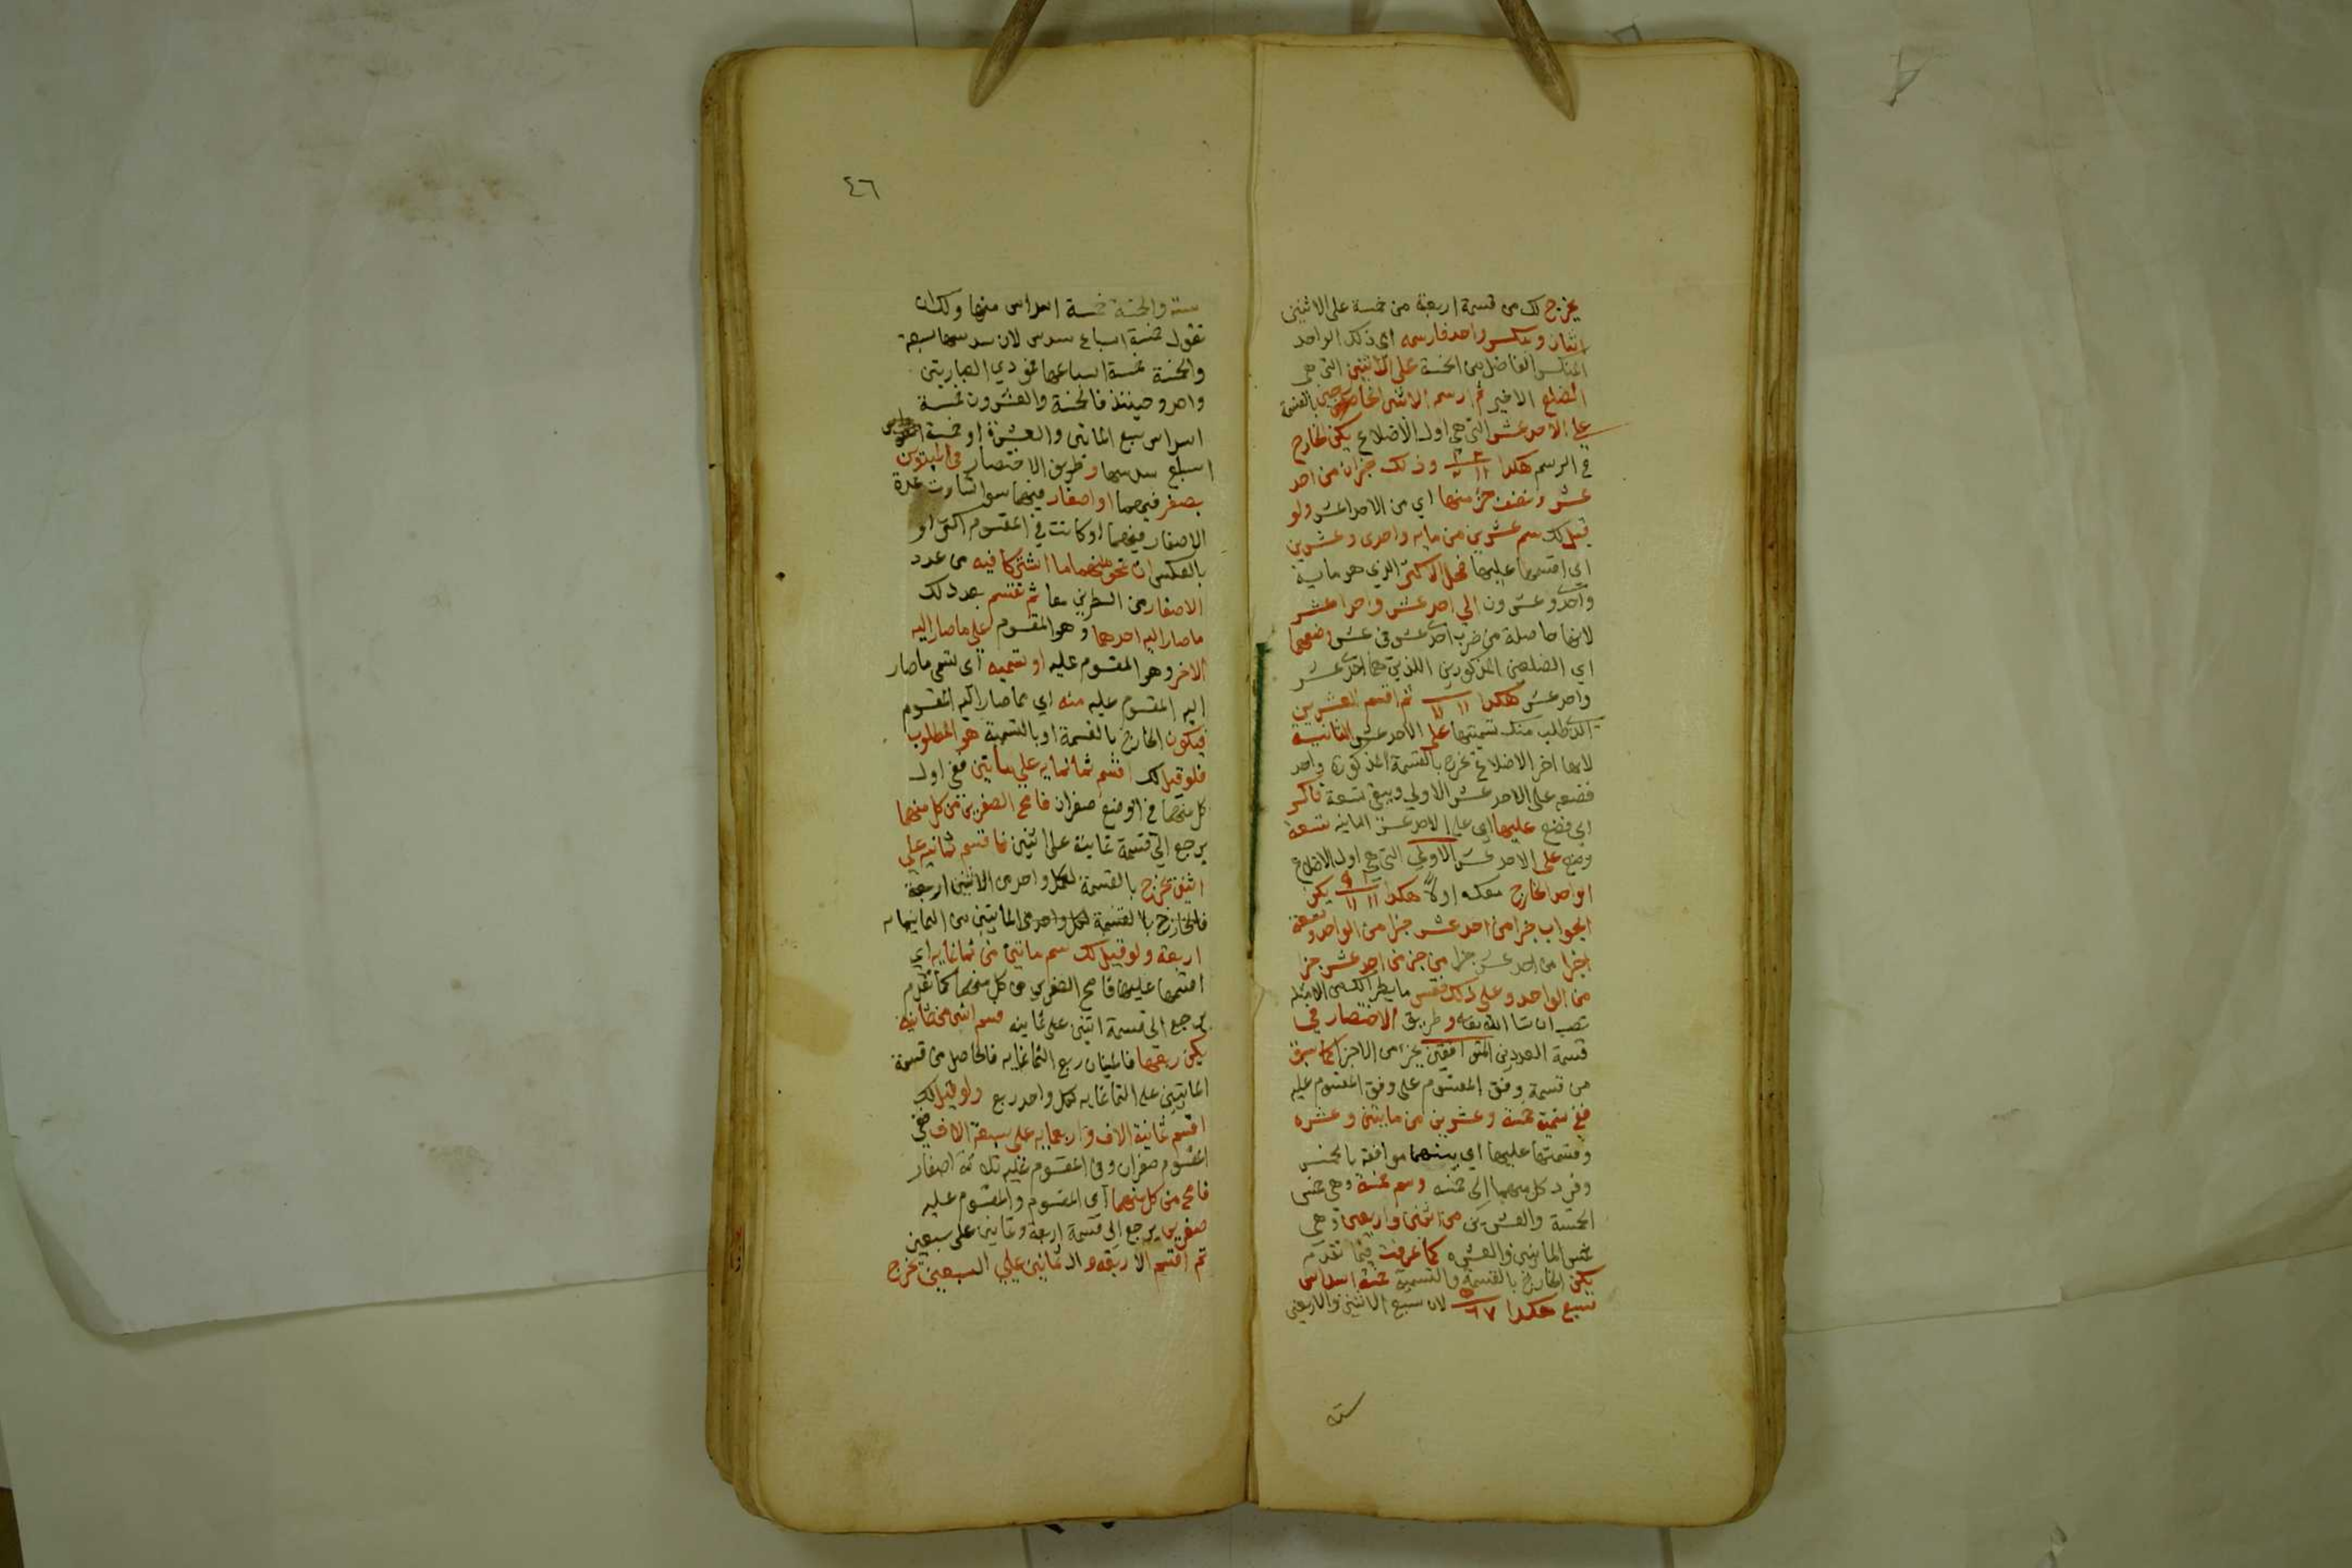 يخرج لك من قسمة اربعة من خمسة على الاثنين
اثنان وينكسر واحد فارسمه اي ذلك الواحد
المنكسر الفاضل من الخمسة على الاثنين التي هي
الضلع الاخير ثم ارسم الاثنين بالقسمة
على الاحد عشر التي هي اول الاضلاع يكن الخارج
في الرسم هكذا وذلك جزان من احد
عشر ونصف جزء منها اي من الاحد عشر ولو
قيل لك سم عشرين من مايه واحدى وعشرين
اي اقسمها عليها فحل الاكثر الذي هو مايية
واحد وعشرون الي احد عشر واحد عشر
لانها حاصلة من ضرب احد عشر في عشر وضعهما
اي الضلعين المذكورين اللذين هما احد عشر
واحد عشر هكذا ١١ ١١ ثم اقسم العشرين
التي طلب منك تسميتها على الاحد عشر الثانية
لانها اخر الاضلاع يخرج بالقسمة المذكورة واحد
فضعه على الاحد عشر الاولي ويبقى تسعة تاكسر
اي فضع عليها اي على الاحد عشر الثانيه تسعة
وضع على الاحد عشر الاولي التي هي اول الاضلاع
الواحد الخارج معك اولا هكذا ١١ ١١ يكن
الجواب جزا من احد عشر جزا من الواحد وتسعة
اجزا من احد عشر جزا من جزء من احد عشر جزا
من الواحد وعلى ذلك فقس ما يطرا لك من الامثلة
تصب ان شا الله تعالى وطريق الاختصار في
قسمة العددين المتوافقين بجزء من الاجزا كما سبق
من قسمة وفق المقسوم على وفق المقسوم عليه
ففي تسمية خمسة وعشرين من مايتين وعشره
وقسمتها عليها اي بينهما موافقة بالخمس
وفرد كل منهما الى خمسه وسم خمسة وهي خمس
الخمسة والعشرين من اثنين واربعين وهي
خمس المايتين والعشره كما عرفت فيما تقدم
يكن الخارج بالقسمة والتسمية خمسة اسداس
سبع هكذا ٥ ٦٧ لان سبع الاثنين والاربعين
سته
٤٦
ستة والخمسة خمسة اسداس منها ولك ان
تقول خمسة اسباع سدس لان سدسها سبعة
والخمسة خمسة اسباعها فمودي العبارتين
واحد وحينئذ فالخمسة والعشرون خمسة
اسداس سبع المايتين والعشرة او خمسة
اسباع سدسها وطريق الاختصار في المبدوين
بصفر فيهما او اصفار فيهما سوا تساوت عدة
الاصفار فيهما او كانت في المقسوم اكثر او
بالعكس ان تمحو منهما ما اشتركا فيه من عدد
الاصفار من الطرفين معا ثم تقسم بعد ذلك
ما صار اليه احدهما وهو المقسوم على ما صار اليه
الاخر وهو المقسوم عليه او تسميه اي تسمي ما صار
اليه المقسوم عليه منه اي مما صار اليه المقسوم
فيكون الخارج بالقسمة او بالتسمية هو المطلوب
فلو قيل لك اقسم ثمانمايه على مايتين ففي اول
كل منهما في الوضع صفران فامح الصفرين من كل منهما
يرجع الى قسمة ثمانية على اثنين فاقسم ثمانيه على
اثنين يخرج بالقسمة لكل واحد من الاثنين اربعة
فالخارج بالقسمة لكل واحد من المايتين من الثمانيمايه
اربعة ولو قيل لك سم مايتين من ثمانمايه اي
اقسمها عليها فامح الصفرين من كل منهما كما تقدم
يرجع الى قسمة اثنين على ثمانيه فسم اثنين من ثمانيه
يكن ربعها فالمايتان ربع الثمانمايه فالحاصل من قسمة
المايتين على الثمانمايه لكل واحد ربع ولو قيل لك
اقسم ثمانية الاف واربعمايه على سبعة الاف ففي
المقسوم صفران وفي المقسوم عليه ثلاثة اصفار
فامح من كل منهما اي المقسوم والمقسوم عليه
صفرين يرجع الى قسمة اربعة وثمانين على سبعين
ثم اقسم الاربعة والثمانين على السبعين يخرج